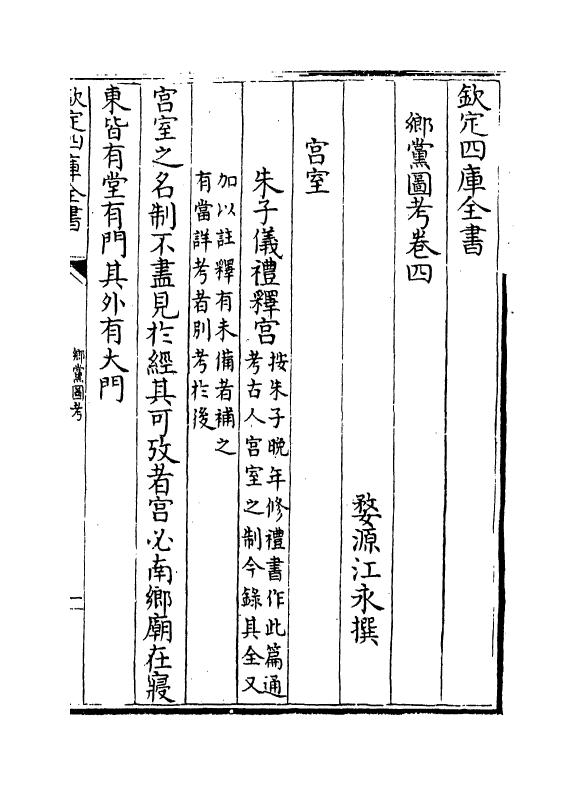 欽定四庫全書
鄉黨圖考卷四
婺源江永撰
宫室
朱子儀禮釋宫
按朱子晚年修禮書作此篇通
考古人宫室之制今錄其全又
加以註釋有未備者補之
有當詳考者別考於後
宫室之名制不盡見於經其可攷者宫必南鄉廟在寢
東皆有堂有門其外有大門
欽定四庫全書
鄉黨圖考
一